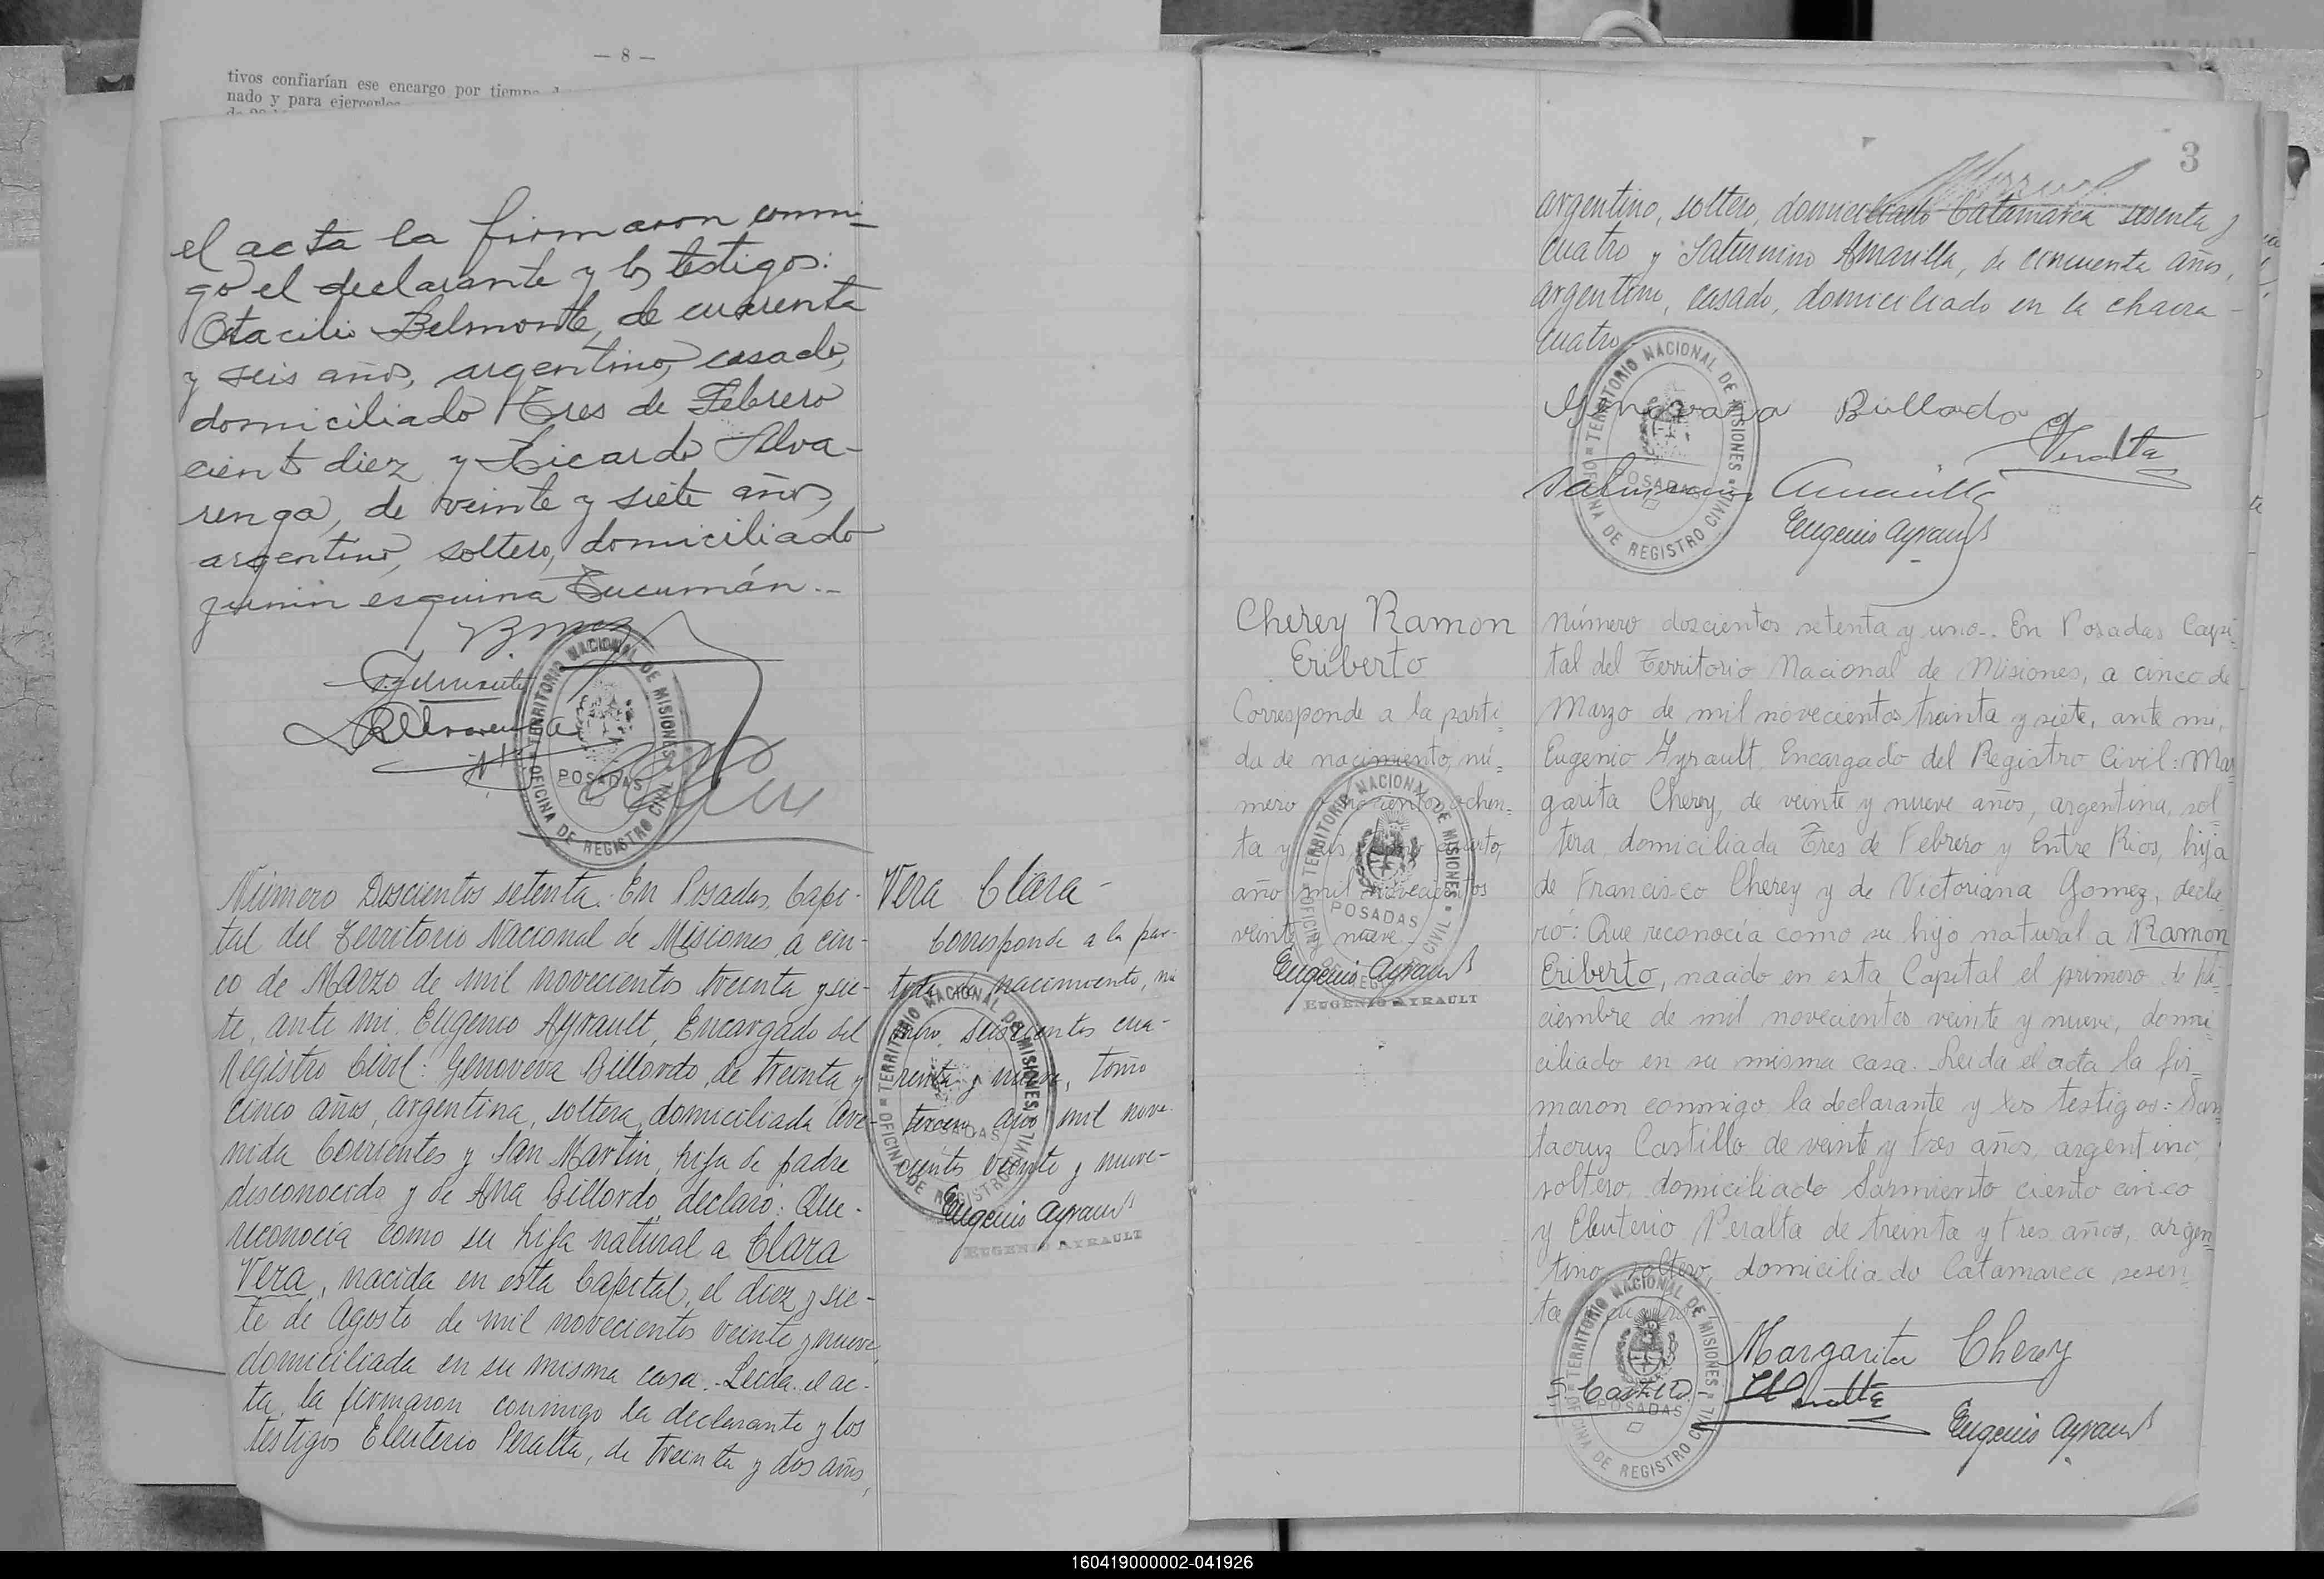 — 8 —
tivos confiarían ese encargo por tiempo
nado y para ejercerlos
el acta la firmaron conmi-
go el declarante y los testigos:
Otacilio Belmonte, de cuarenta
y seis años, argentino, casado,
domiciliado Tres de Febrero
ciento diez y Ricardo Alva-
renga, de veinte y siete años,
argentino, soltero, domiciliado
Junin esquina Tucumán.-
OFICINA DE REGISTRO CIVIL
TERRITORIO NACIONAL DE MISIONES
POSADAS
Número Doscientos setenta. En Posadas, Capi-
tal del Territorio Nacional de Misiones, a cin-
co de Marzo de mil novecientos treinta y sie-
te, ante mi, Eugenio Ayrault, Encargado del
Registro Civil: Genoveva Billordo, de treinta y
cinco años, argentina, soltera, domiciliada Ave-
nida Corrientes y San Martin, hija de padre
desconocido y de Ana Billordo, declaró: Que-
reconocia como su hija natural a Clara
Vera, nacida en esta Capital, el diez y sie-
te de Agosto de mil novecientos veinte y nueve,
domiciliada en su misma casa.- Leida el ac-
ta, la firmaron conmigo la declarante y los
testigos Eleuterio Peralta, de treinta y dos años,
Vera Clara-
Corresponde a la par-
tida de nacimiento, nú
mero seiscientos cua-
renta y nueve, tomo
tercero, año mil nove-
cientos veinte y nueve-
TERRITORIO NACIONAL DE MISIONES
OFICINA DE REGISTRO CIVIL
POSADAS
Eugenio Ayrault
EUGENIO AYRAULT
3
argentino, soltero, domiciliado Catamarca sesenta y
cuatro y Saturnino Amarilla, de cincuenta años,
argentino, casado, domiciliado en la chacra-
cuatro
TERRITORIO NACIONAL DE MISIONES
OFICINA DE REGISTRO CIVIL
POSADAS
Genoveva Billordo
Peralta
Saturnino Amarilla
Eugenio Ayrault
Cherey Ramon
Eriberto
Corresponde a la parti-
da de nacimiento, nú-
mero ochen-
ta y cuarto,
año mil novecientos
veinte nueve-
TERRITORIO NACIONAL DE MISIONES
OFICINA DE REGISTRO CIVIL
POSADAS
Eugenio Ayrault
EUGENIO AYRAULT
Número doscientos setenta y uno.- En Posadas Capi-
tal del Territorio Nacional de Misiones, a cinco de
Marzo de mil novecientos treinta y siete, ante mi,
Eugenio Ayrault, Encargado del Registro Civil: Mar-
garita Cherey, de veinte y nueve años, argentina, sol-
tera, domiciliada Tres de Febrero y Entre Rios, hija
de Francisco Cherey y de Victoriana Gomez, decla-
ró: Que reconocia como su hijo natural a Ramon
Eriberto, nacido en esta Capital el primero de Di-
ciembre de mil novecientos veinte y nueve, domi-
ciliado en su misma casa. Leida el acta la fir-
maron conmigo la declarante y los testigos: San-
tacruz Castillo de veinte y tres años, argentino,
soltero, domiciliado Sarmiento ciento cinco
y Eleuterio Peralta de treinta y tres años, argen-
tino, soltero, domiciliado Catamarca sesen-
ta y cuatro
TERRITORIO NACIONAL DE MISIONES
OFICINA DE REGISTRO CIVIL
POSADAS
Margarita Cherey
S Castillo
Peralta
Eugenio Ayrault
160419000002-041926